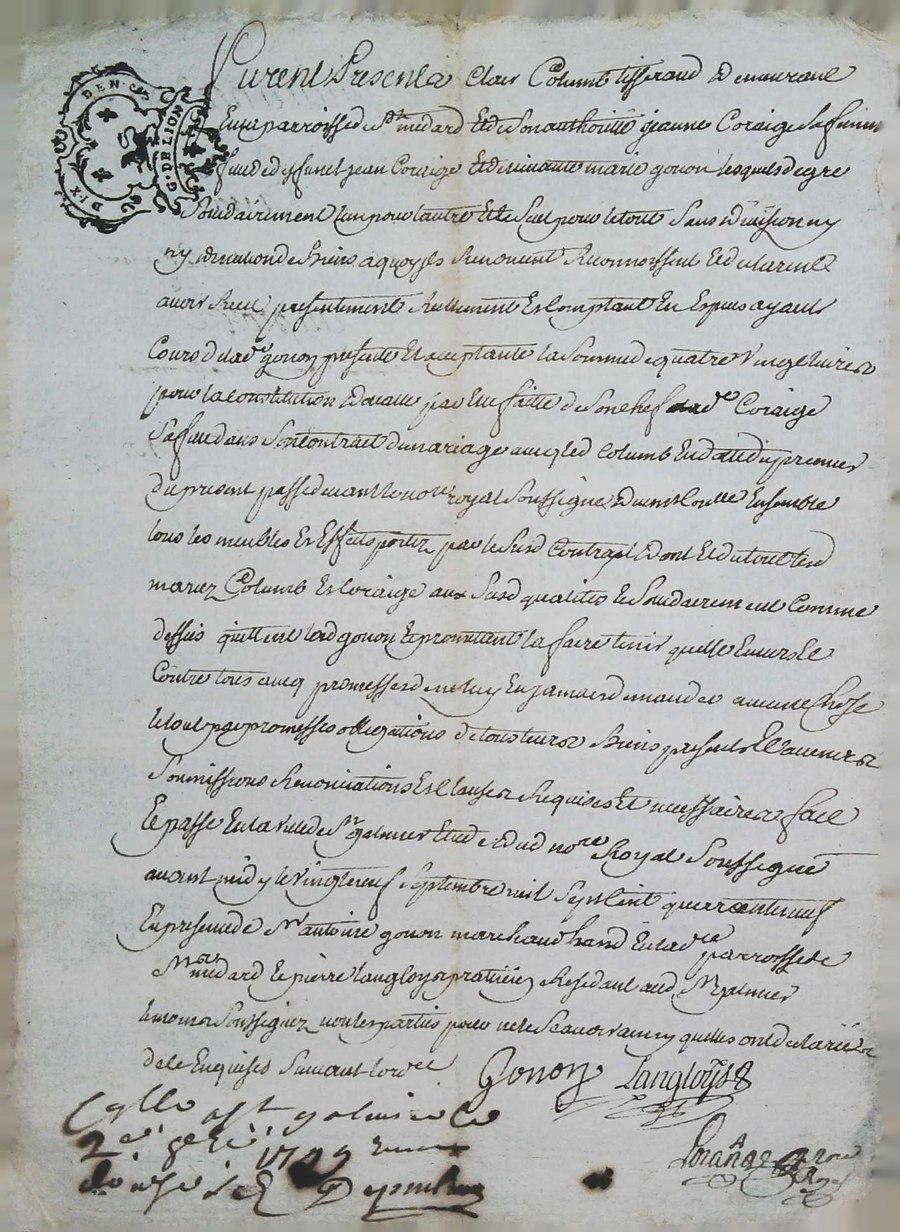 DIX DEN. G. DE LION
Furent Presents Clair Columb tisserand Demeurant
En la parroisse de St medard Et de Son authorité jeanne Coraige Sa femme
fille de deffunct jean Coraige Et de vivante marie gonon lesquels de gre
Solidairement l'un pour l'autre Et le Seul pour le tout Sans division ny
ny de biens a quoy ils Renoncent Reconnoissent Et declarent
avoir Receu presentement Reellement Et Comptant En Especes ayant
Cours de lade gonon presente Et acceptante la Somme de quatre Vingt livres
pour la Constitution a Elle par Elle faitte de Son chef a lade Coraige
Sa fille dans Son Contrait de mariage avecq led Columb En datte du premier
du present passé devant le nore royal Soussigne Ensemble
tous les meubles Et Effets portez par le Susd Contrait dont Et du tout lesd
mariez Columb Et Coraige aux Susd qualites Et Solidairement Comme
dessus quittent lad gonon Et promettent la faire tenir quitte Envers Et
Contre tous avecq promesses de ne luy En jamais demander aucune Chose
le tout par promesses obligations de tous leurs biens presents Et avenirs
Soumissions Renonciations Et Clauses Requises Et necessaires fait
Et passé En la ville de St galmier Etude dud nore Royal Soussigné
avant midy le vingt neuf Septembre mil Sept Cent quarente neuf
En presence de Sr antoine gonon marchand En lade parroisse de
St medard Et pierre Langlois praticien Residant aud St galmier
temoins Soussignez non les parties pour ne le Scavoir ainsy qu'elles ont declaré
de ce Enquises Suivant l'ordce
Gonon Langloys
Collé a St galmier le
1749
douze Sols
nore Royal